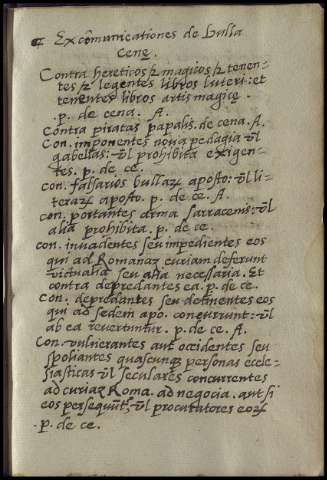 ¶ Excõmunicationes de bulla
Cenę.
Contra hereticos et magicos et tenen-
tes et legentes libros luteri: et
tenentes libros artis magicę
.p. de cena. A.
Contra piratas papalis. de cena. A.
Con. imponentes nova pedagia vl
gabellas: vl prohibita exigen-
tes. p. de ce.
con. falsarios bullaꝝ aposto: vl li-
teraꝝ aposto. p. de ce. A.
con. portantes arma sarracenis: vl
alia prohibita. p. de ce.
con. invadentes seu impedientes eos
qui ad Romanaꝝ curiam deferunt
victualia seu alia necessaria. Et
contra depredantes ea. p. de ce.
Con. depredantes seu detinentes eos
qui ad sedem apo. concurrunt: vl
ab ea revertuntur. p. de ce. A.
Con. vulnerantes aut occidentes seu
spoliantes quascunqꝫ personas eccle-
siasticas vl seculares concurrentes
ad curiaꝝ Roma. ad negocia. aut si
eos persequũt. vl procuratores eoꝝ
.p. de ce.